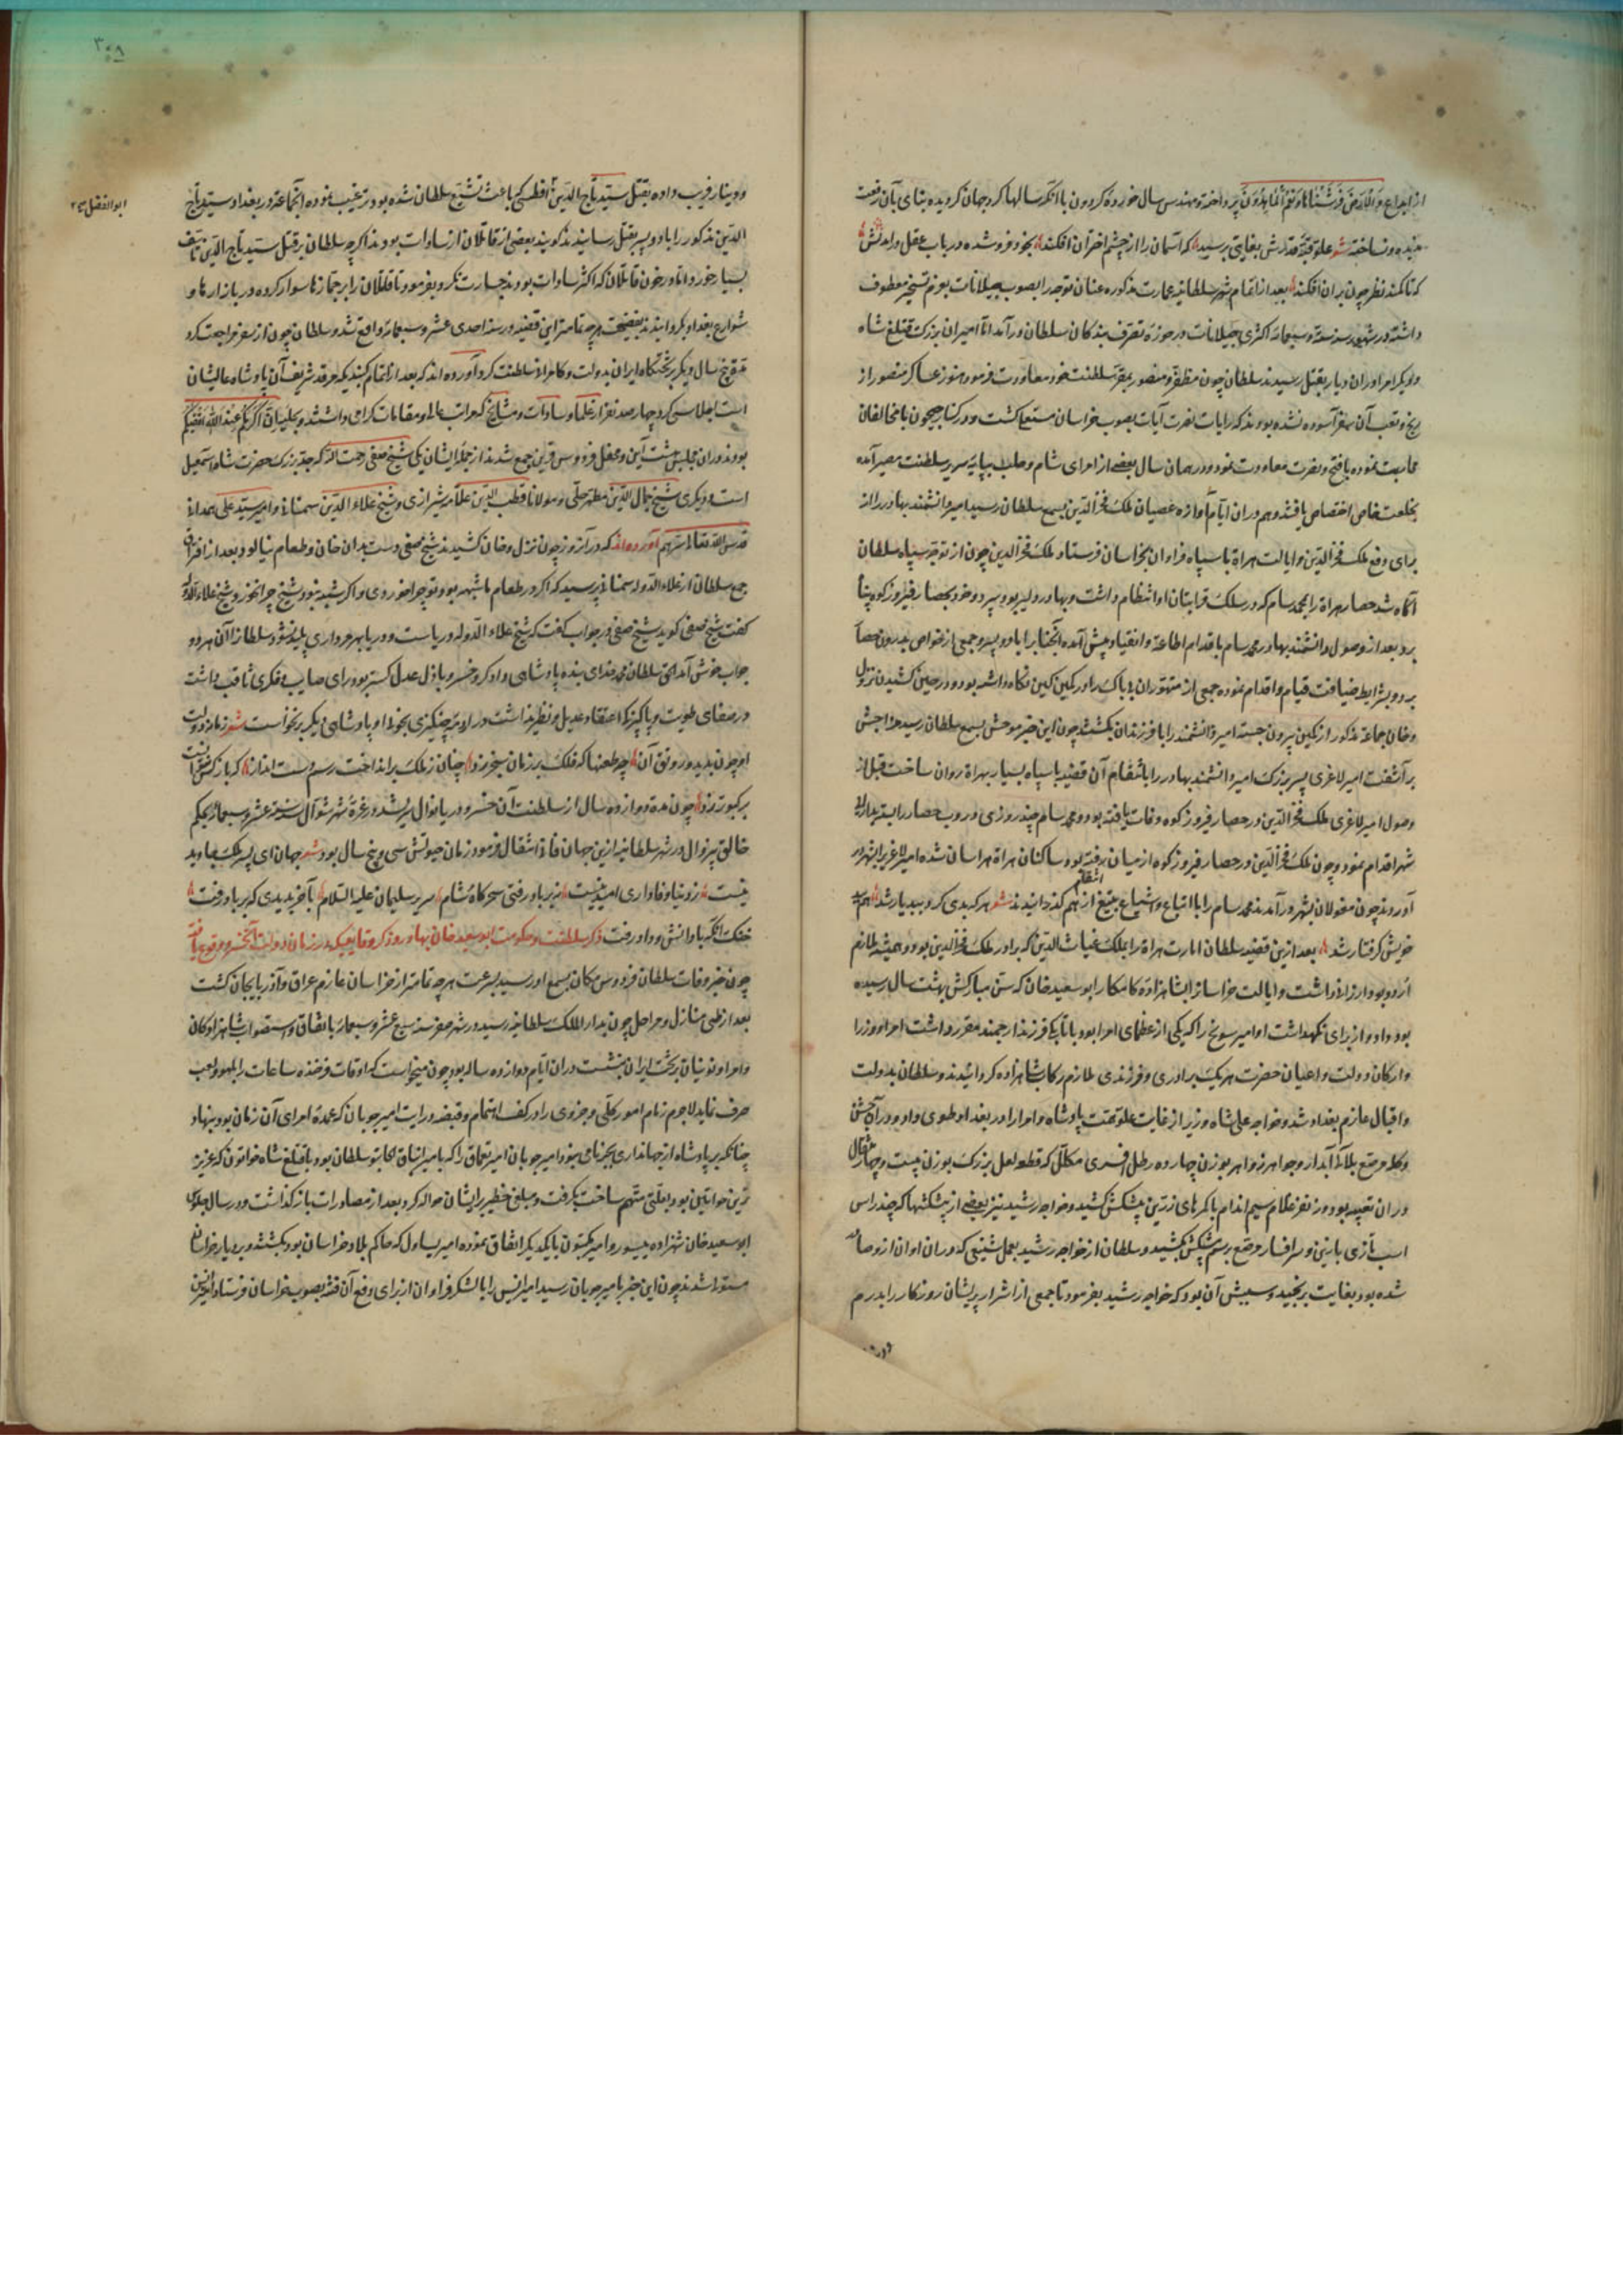 از ابداع وَالْأَرْضَ فَرَشْنَاهَا فَنِعْمَ الْمَاهِدُونَ پرداخته و مهندس سال خورده گردون با آنکه سالها گرد جهان گردیده بنای بآن رفعت
ندیده و نساخته شعر علو قبه قدرش بغایتی برسید که آسمان را از چشم اختران افکند بخود فروشده در باب عقل و دانش
که تا کمند نظر چون بران افکند بعد از اتمام شهر سلطانیه عمارت مذکوره عنان توجه را بصوب جیلانات بعزم تسخیر معطوف
داشته در شهور سنه ستة و سبعمائه اکثری جیلانات در حوزه تصرف بندکان سلطان درآمد اما امیران بزرک قتلغ شاه
و دیکر امرا دران دیار بقتل رسیدند سلطان چون مظفر و منصور بمقر سلطنت خود معاودت فرمود هنوز عساکر منصور از
رنج و تعب آن سفر آسوده نشده بودند که رایات نصرت آیات بصوب خراسان مستعلی کشت و در کنار جیحون با مخالفان
محاربت نموده با فتح و نصرت معاودت نمود و در همان سال بعضی از امرای شام و حلب بپایه سریر سلطنت مصیر آمده
بخلعت خاص اختصاص یافتند و هم دران ایام آوازه عصیان ملک فخرالدین بسمع سلطان رسید امیر دانشمند بهادر را از
برای دفع ملک فخرالدین و ایالت هراة با سپاه فراوان بخراسان فرستاد ملک فخرالدین چون از توجه سپاه سلطان
آکاه شد حصار هراة را بمحمد سام که در سلک قرابتان او انتظام داشت و بهادر و دلیر بود سپرد و خود بحصار فیروز کوه پناه
برد بعد از وصول دانشمند بهادر محمد سام باقدام اطاعة و انقیاد پیش آمده آنجناب را با دو پسر و جمعی از خواص بدرون حصار
برد و بشرایط ضیافت قیام و اقدام نموده جمعی از متهوران بی باک را در کمین کین نکاه داشته بود و در حین کشیدن نزل
و خان جماعة مذکور از کمین بیرون جستند امیر دانشمند را با فرزندان بکشتند چون این خبر موحش بسمع سلطان رسید مزاجش
برآشفت امیر لاغری پسر بزرک امیر دانشمند بهادر را بانتقام آن قضیه با سپاه بسیار بهراة روان ساخت قبل از
وصول امیر لاغری ملک فخرالدین در حصار فیروز کوه وفات یافته بود و محمد سام چند روزی در وب حصار را بسته بدارائی
شهر اقدام نمود و چون ملک فخرالدین در حصار فیروز کوه از میان رفته بود ساکنان هراة هراسان شده امیر لاغری را بشهر در
آوردند چون مغولان بشهر درآمدند محمد سام را با اتباع و اشیاع بتیغ انتقام از هم کذرانیدند شعر هر که بدی کرد و ببد یار شد هم ببد
خویش کرفتار شد بعد ازین قضیه سلطان امارت هراة را بملک غیاث الدین که برادر ملک فخرالدین بود و همیشه ملازم
اردو بود ارزانی داشت و ایالت خراسان را بشاهزاده کامکار ابوسعید خان که سن مبارکش بهشت سال رسیده
بود داد و از برای نکهداشت او امیر سونج را که یکی از عظمای امرا بود باتابکی فرزند ارجمند مقرر داشت امرا و وزرا
و ارکان دولت و اعیان حضرت هر یک برادری و فرزندی ملازم رکاب شاهزاده کردانیدند و سلطان بدولت
و اقبال عازم بغداد شد و خواجه علی شاه وزیر از غایت علو همت پادشاه و امرا را در بغداد طوی داد و در آن جشن
و کله مرصع بلآلی آبدار و جواهر زواهر بوزن چهارده رطل افسری مکلل که قطعه لعل بزرک بوزن بیست و چهار مثقال
دران تعبیه بود و نه نفر غلام سیم اندام با کمرهای زرین پیشکش کشید و خواجه رشید نیز بعضی از پیشکشها که چند راس
اسب تازی با زین و سرافسار مرصع برسم پیشکش بکشید و سلطان از خواجه رشید بعمل شنیعی که دران اوان ازو صادر
شده بود بغایت برنجید و سببش آن بود که خواجه رشید بفرمود تا جمعی از اشرار پریشان روزکار را بدرم
و دینار
۳۵۸
ابوالفضل
و دینار فریب داده بقتل سید تاج الدین افطسی که باعث تشیع سلطان شده بود ترغیب نموده آنجماعة در بغداد سید تاج
الدین مذکور را با دو پسر بقتل رسانیدند کویند بعضی از قاتلان از سادات بودند اکرچه سلطان بر قتل سید تاج الدین تاسف
بسیار خورد اما در خون قاتلان که اکثر سادات بودند جسارت نکرد و بفرمود تا قاتلان را بر جمازها سوار کرده در بازارها و
شوارع بغداد بکردانیدند بفضیحت هرچه تمامتر این قضیه در سنه احدی عشر و سبعمائه واقع شد و سلطان چون از سفر مراجعت کرد
قرب پنج سال دیکر بر تختکاه ایران بدولت و کامرانی سلطنت کرد آورده اند که بعد از اتمام کنبدیکه مرقد شریف آن پادشاه عالیشان
است اجلاسی کرد چهارصد نفر از علما و سادات و مشایخ که مراتب عالی و مقامات کرامی داشتند و بحلیه إِنَّ أَكْرَمَكُمْ عِنْدَ اللَّهِ أَتْقَاكُمْ
بودند دران مجلس بهشت آیین و محفل فردوس قرین جمع شدند از جمله ایشان یکی شیخ صفی رحمت الله که جد بزرک حضرت شاه اسمعیل
است و دیکری شیخ جمال الدین مطهر حلی و مولانا قطب الدین علامه شیرازی و شیخ علاء الدین سمنانی و امیر سید علی همدانی
قدس الله تعالی اسرارهم آورده اند که در آن روز چون نزل و خان کشیدند شیخ صفی دست بدان خان و طعام نیالود بعد از افتراق
جمع سلطان از علاء الدوله سمنانی پرسید که اکر در طعام ما شبهه بود تو چرا خوردی و اکر شبه نبود شیخ چرا نخورد شیخ علاء الدوله
کفت شیخ صفی کوید شیخ صفی در جواب کفت که شیخ علاء الدوله دریاست و دریا بهر مرداری پلید نشود سلطان را آن هر دو
جواب خوش آمد الحق سلطان محمد خدای بنده پادشاهی دادکر و خسرو باذل عدل کستر بود و رای صایب و فکری ثاقب داشت
در صفای طویت و پاکیزکی اعتقاد عدیل و نظیر نداشت و در اروغ چنکیزی بخوبی او پادشاهی دیکر برنخواست شعر زمانه دولت
او چون بدید و رونق آن چه طعنها که فلک بر زمان سنجر زد چنان ز ملک برانداخت رسم دست انداز که باز کس نتوانست
بر کبوتر زد چون مدة دوازده سال از سلطنت آن خسرو دریا نوال بسر شد در غره شهر شوال سنه ستة عشر و سبعمائه بحکم
خالق بیزوال در شهر سلطانیه ازین جهان فانی انتقال فرمود زمان حیوتش سی و پنج سال بود شعر جهان ای پسر ملک جاوید
نیست ز دنیا وفاداری امید نیست نه بر باد رفتی سحرکاه و شام سریر سلیمان علیه السلام بآخر ندیدی که بر باد رفت
خنک آنکه با دانش و داد رفت ذکر سلطنت و حکومت ابوسعید خان بهادر و ذکر وقایعیکه در زمان دولت آنخسرو بوقوع یافته
چون خبر وفات سلطان فردوس مکان بسمع او رسید بسرعت هرچه تمامتر از خراسان عازم عراق و آذربایجان کشت
بعد از طی منازل و مراحل چون بدار الملک سلطانیه رسید در شهر صفر سنه سبع عشر و سبعمائه باتفاق و استصواب شاهزادکان
و امرا و نوئینان بر تخت ایران بنشست دران ایام دوازده ساله بود چون میخواست که اوقات فرخنده ساعات را بلهو و لعب
صرف نماید لاجرم زمام امور کلی و جزوی را در کف اهتمام و قبضه درایت امیر چوبان که عمده امرای آن زمان بود بنهاد
چنانکه بر پادشاه از جهانداری بجز نامی نبود و امیر چوبان امیر تغماق را که با میر ایناق الجایتو سلطان بود با قتلغ شاه خواتون که عزیز
ترین خواتین بود بعلتی متهم ساخت بکرفت و مبلغی خطیر بر ایشان حواله کرد بعد از مصادرات باز کذاشت و در سال جلوس
ابوسعید خان شهزاده ییسور و امیر بکتوت با یکدیکر اتفاق نموده امیر یساول که حاکم بلاد خراسان بود بکشتند و بر دیار خراسان
مستولی شدند چون این خبر بامیر چوبان رسید امیر ایسن را با لشکر فراوان از برای دفع آن فتنه بصوب خراسان فرستاد